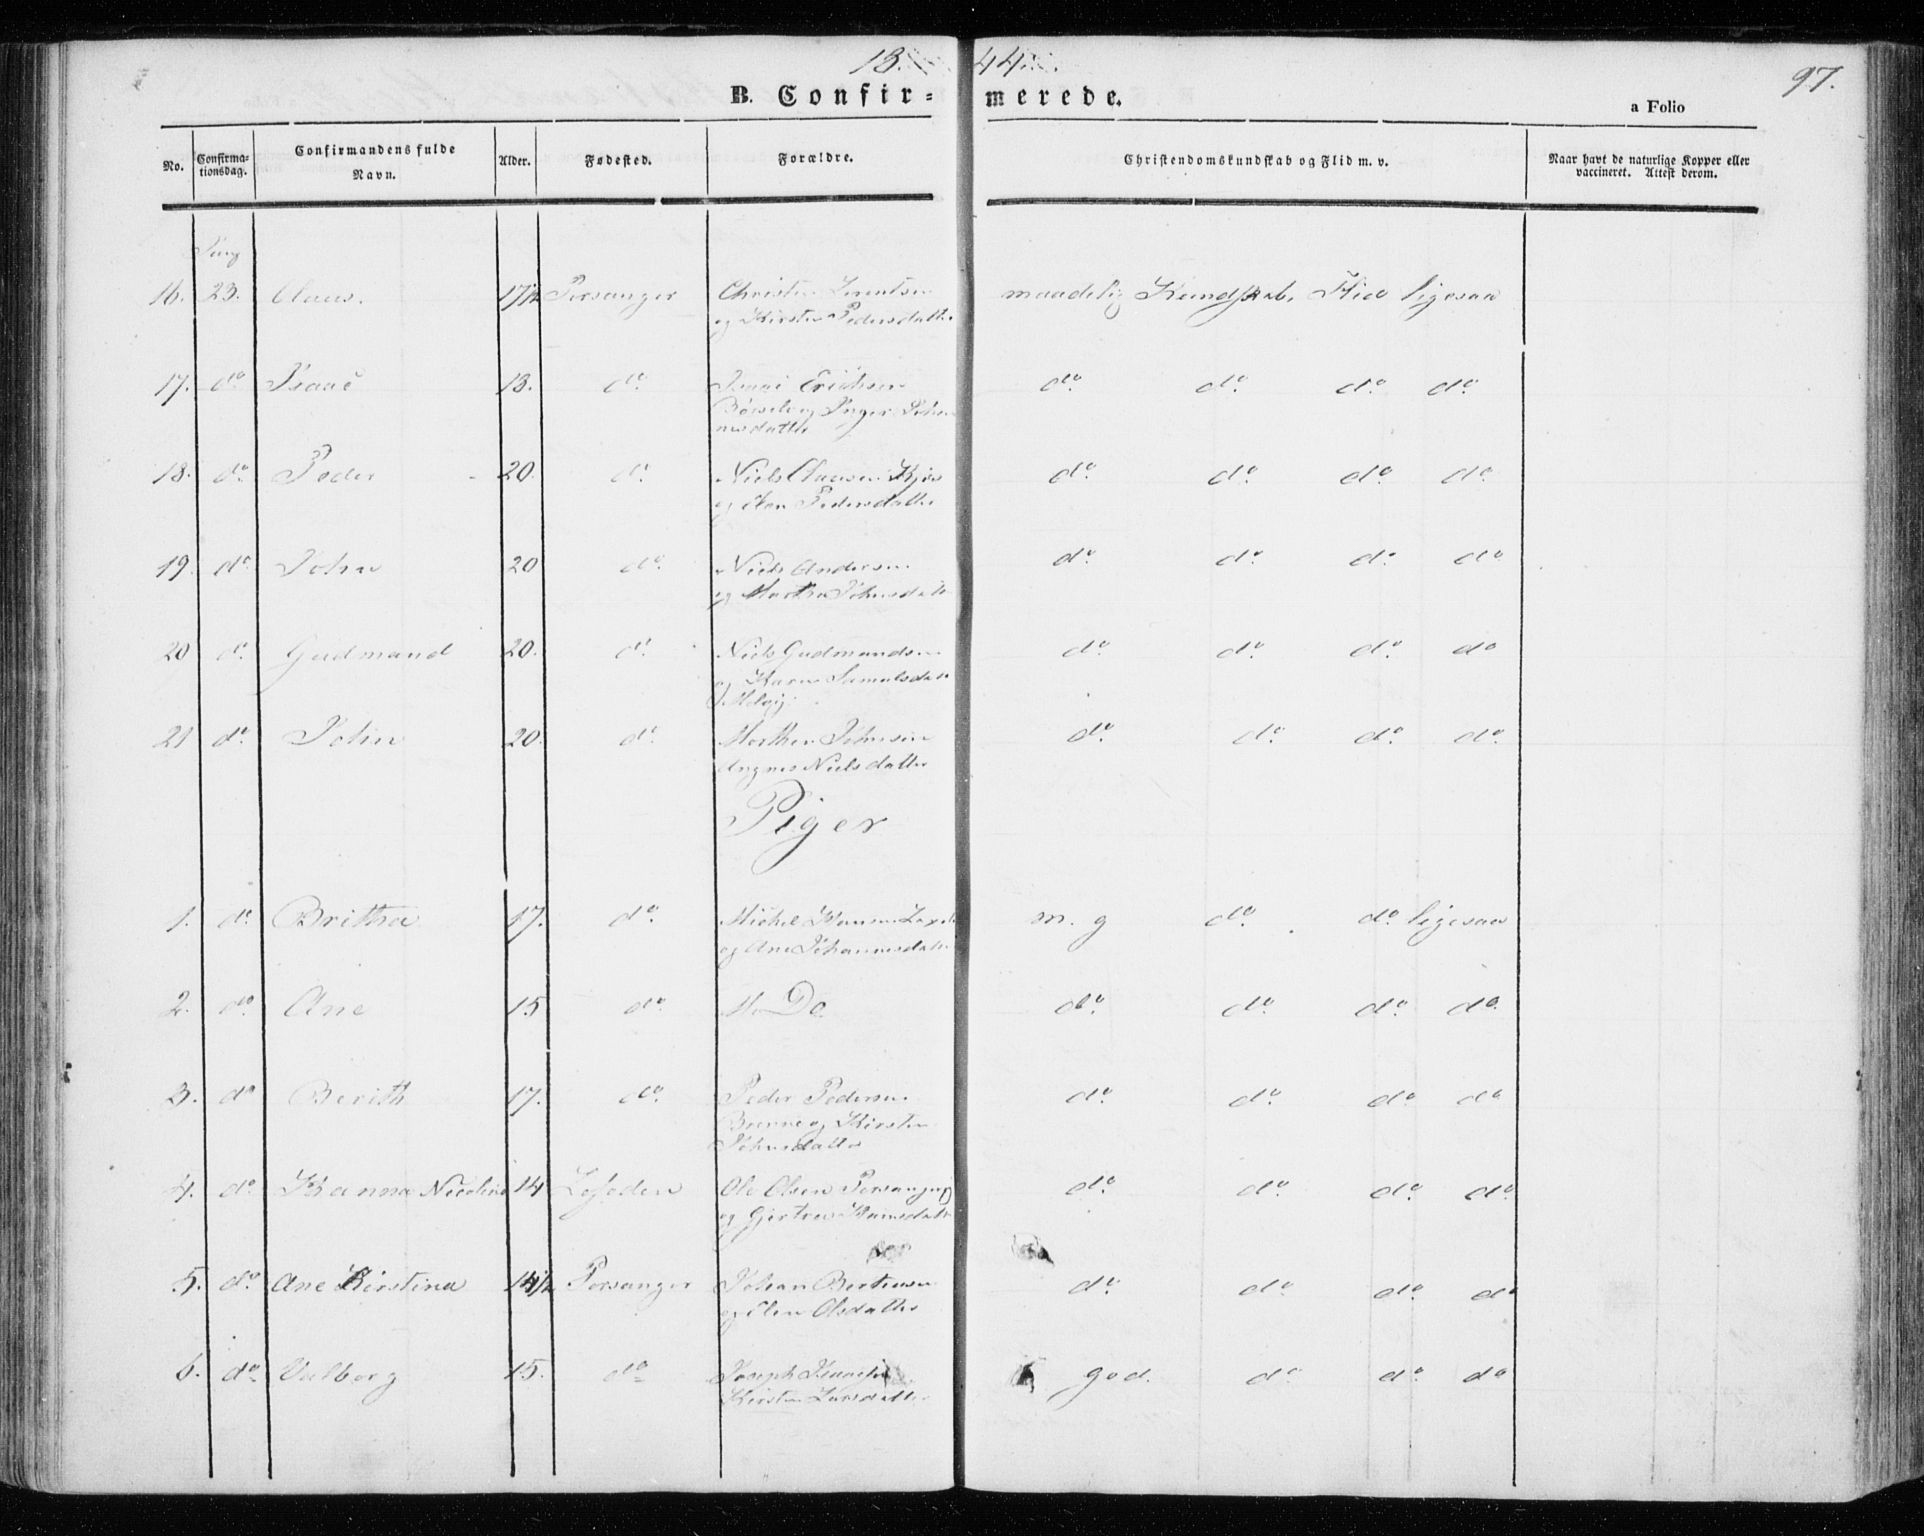 18 44.
97.
B. Confir= merede.
a Folio
No. Confirma= tionsdag. Confirmandens fulde Navn. Alder. Fødested. Forældre. Christendomskundskab og Flid m. v. Naar havt de naturlige Kopper eller vaccineret. Attest derom.
16. 23. Claus. 17½ Porsanger Christen Lorentsen maadelig Kundskab, Flid ligesaa
og Kirsten Pedersdatter
17. do Isaac 18. do Erichsen do. do. do. do.
Børselv og Inger
datter
18. do. Peder 20. do. Niels Clausen do. do. do. do.
og Pedersdatter
19. do. John 20 do. Niels Andersen do. do. do. do.
og Marthe Johnsdatter
20 do. Gudmand 20. do. Niels Gudmundsen do. do. do. do
og Karen Samulsdatter
21 do. John 20. do. Morthen Johnsen do. do. do. do.
Angnes Nielsdatter
Piger
1. do. Britha 17. do. Michel Hansen m. g do. do. ligesaa
og Ane Johannesdatter
2. do. Ane 15 do. Do do. do. do. do.
3. do Berith 17. do. Peder Pedersen do. do. do. do
Brenne og Kirsten
Johnsdatter
4. do. Hanna Nicoline 14 Ole Olsen Porsanger do. do. do. do.
og Gjertrud Hansdatter
5. do. Ane Kirstina 14½ Porsanger Johan Berthesen do. do. do. do
og Elen Olsdatter
6. do. Valborg 15. do Joseph god. do. do. do
Kirsten Larsdatter